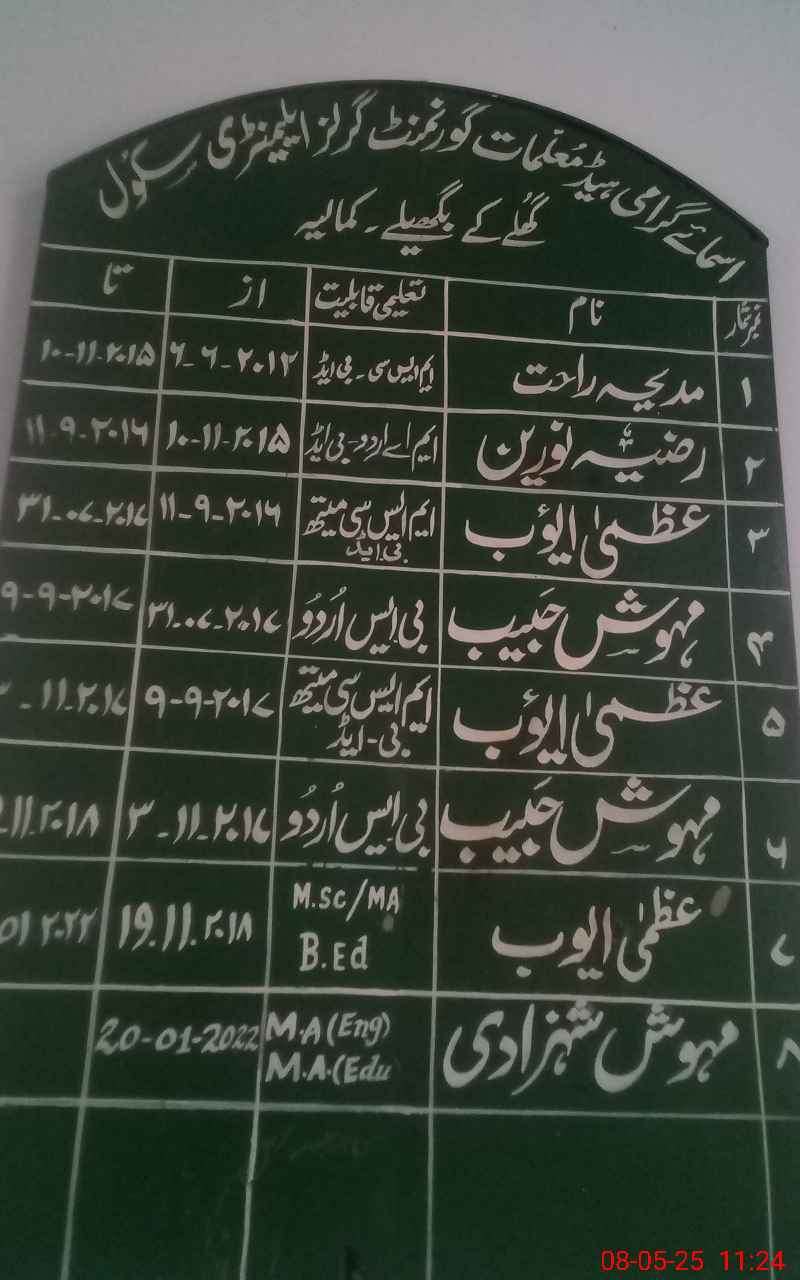 اسمائے گرامی ہیڈ معلمات گورنمنٹ گرلز ایلیمنٹری سکول
گھلے کے بگھیلے ۔ کمالیہ
نمبر شمار نام تعلیمی قابلیت از تا
۱ مدیحہ راحت ایم ایس سی ۔ بی ایڈ ۶-۶-۲۰۱۲ ۱۰-۱۱-۲۰۱۵
۲ رضیہ نورین ایم اے اردو-بی ایڈ ۱۰-۱۱-۲۰۱۵ ۱۱-۹-۲۰۱۶
۳ عظمیٰ ایوب ایم ایس سی میتھ ۱۱-۹-۲۰۱۶ ۳۱-۰۷-۲۰۱۷
بی ایڈ
۴ مہوش حَبیب بی ایس اُردُو ۳۱-۰۷-۲۰۱۷ ۹-۹-۲۰۱۷
۵ عظمیٰ ایوب ایم ایس سی میتھ ۹-۹-۲۰۱۷ -۱۱-۲۰۱۷
بی-ایڈ
۶ مہوش حَبیب بی ایس اُردُو ۳-۱۱-۲۰۱۷ .۱۱.۲۰۱۸
۷ عظمیٰ ایوب M.Sc/MA 19.11.۲۰۱۸ 01 ۲۰۲۲
B.Ed
۸ مہوش شہزادی M.A(Eng) 20-01-2022
M.A.(Edu
08-05-25 11:24